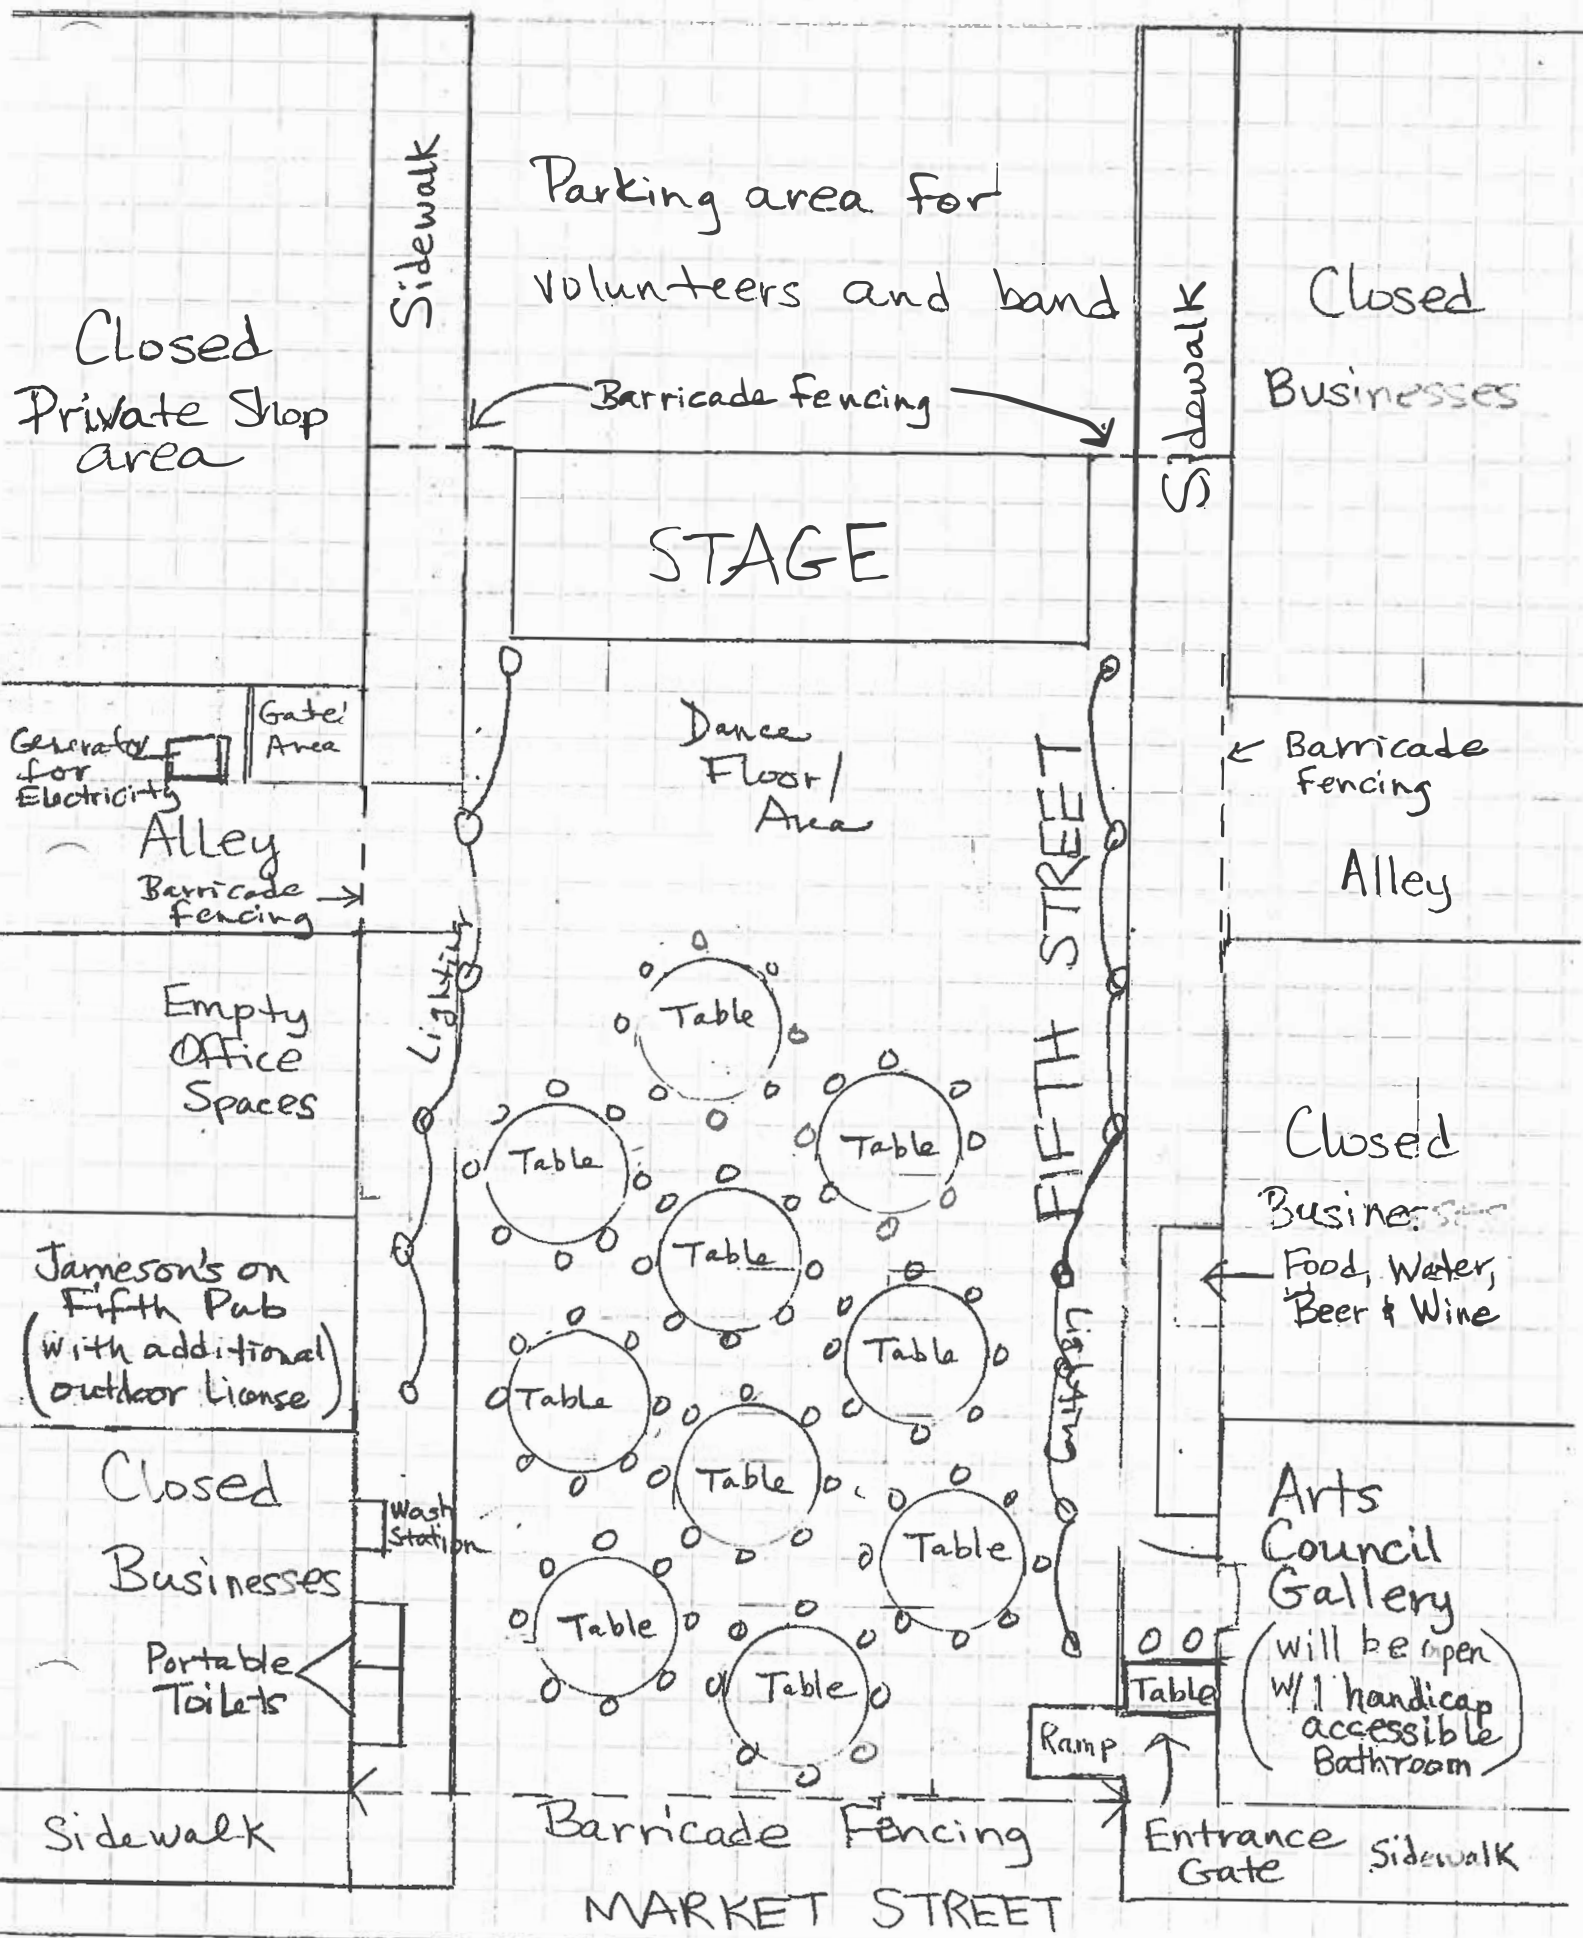 Sidewalk
Parking area for
volunteers and band
Sidewalk
Closed
Private Shop
area
Closed
Businesses
Barricade fencing
STAGE
Gate
Area
Generator
for
Electricity
Alley
Barricade
fencing
Dance
Floor/
Area
FIFTH STREET
Barricade
fencing
Alley
Lighting
Empty
Office
Spaces
Table
Table
Table
Table
Table
Table
Table
Table
Table
Table
Closed
Businesses
Food, Water,
Beer & Wine
Jameson's on
Fifth Pub
(with additional
outdoor License)
Lighting
Closed
Businesses
Wash
Station
Portable
Toilets
Arts
Council
Gallery
(will be open
w/1 handicap
accessible
Bathroom)
Table
Ramp
Sidewalk
Barricade Fencing
Entrance
Gate
Sidewalk
MARKET STREET